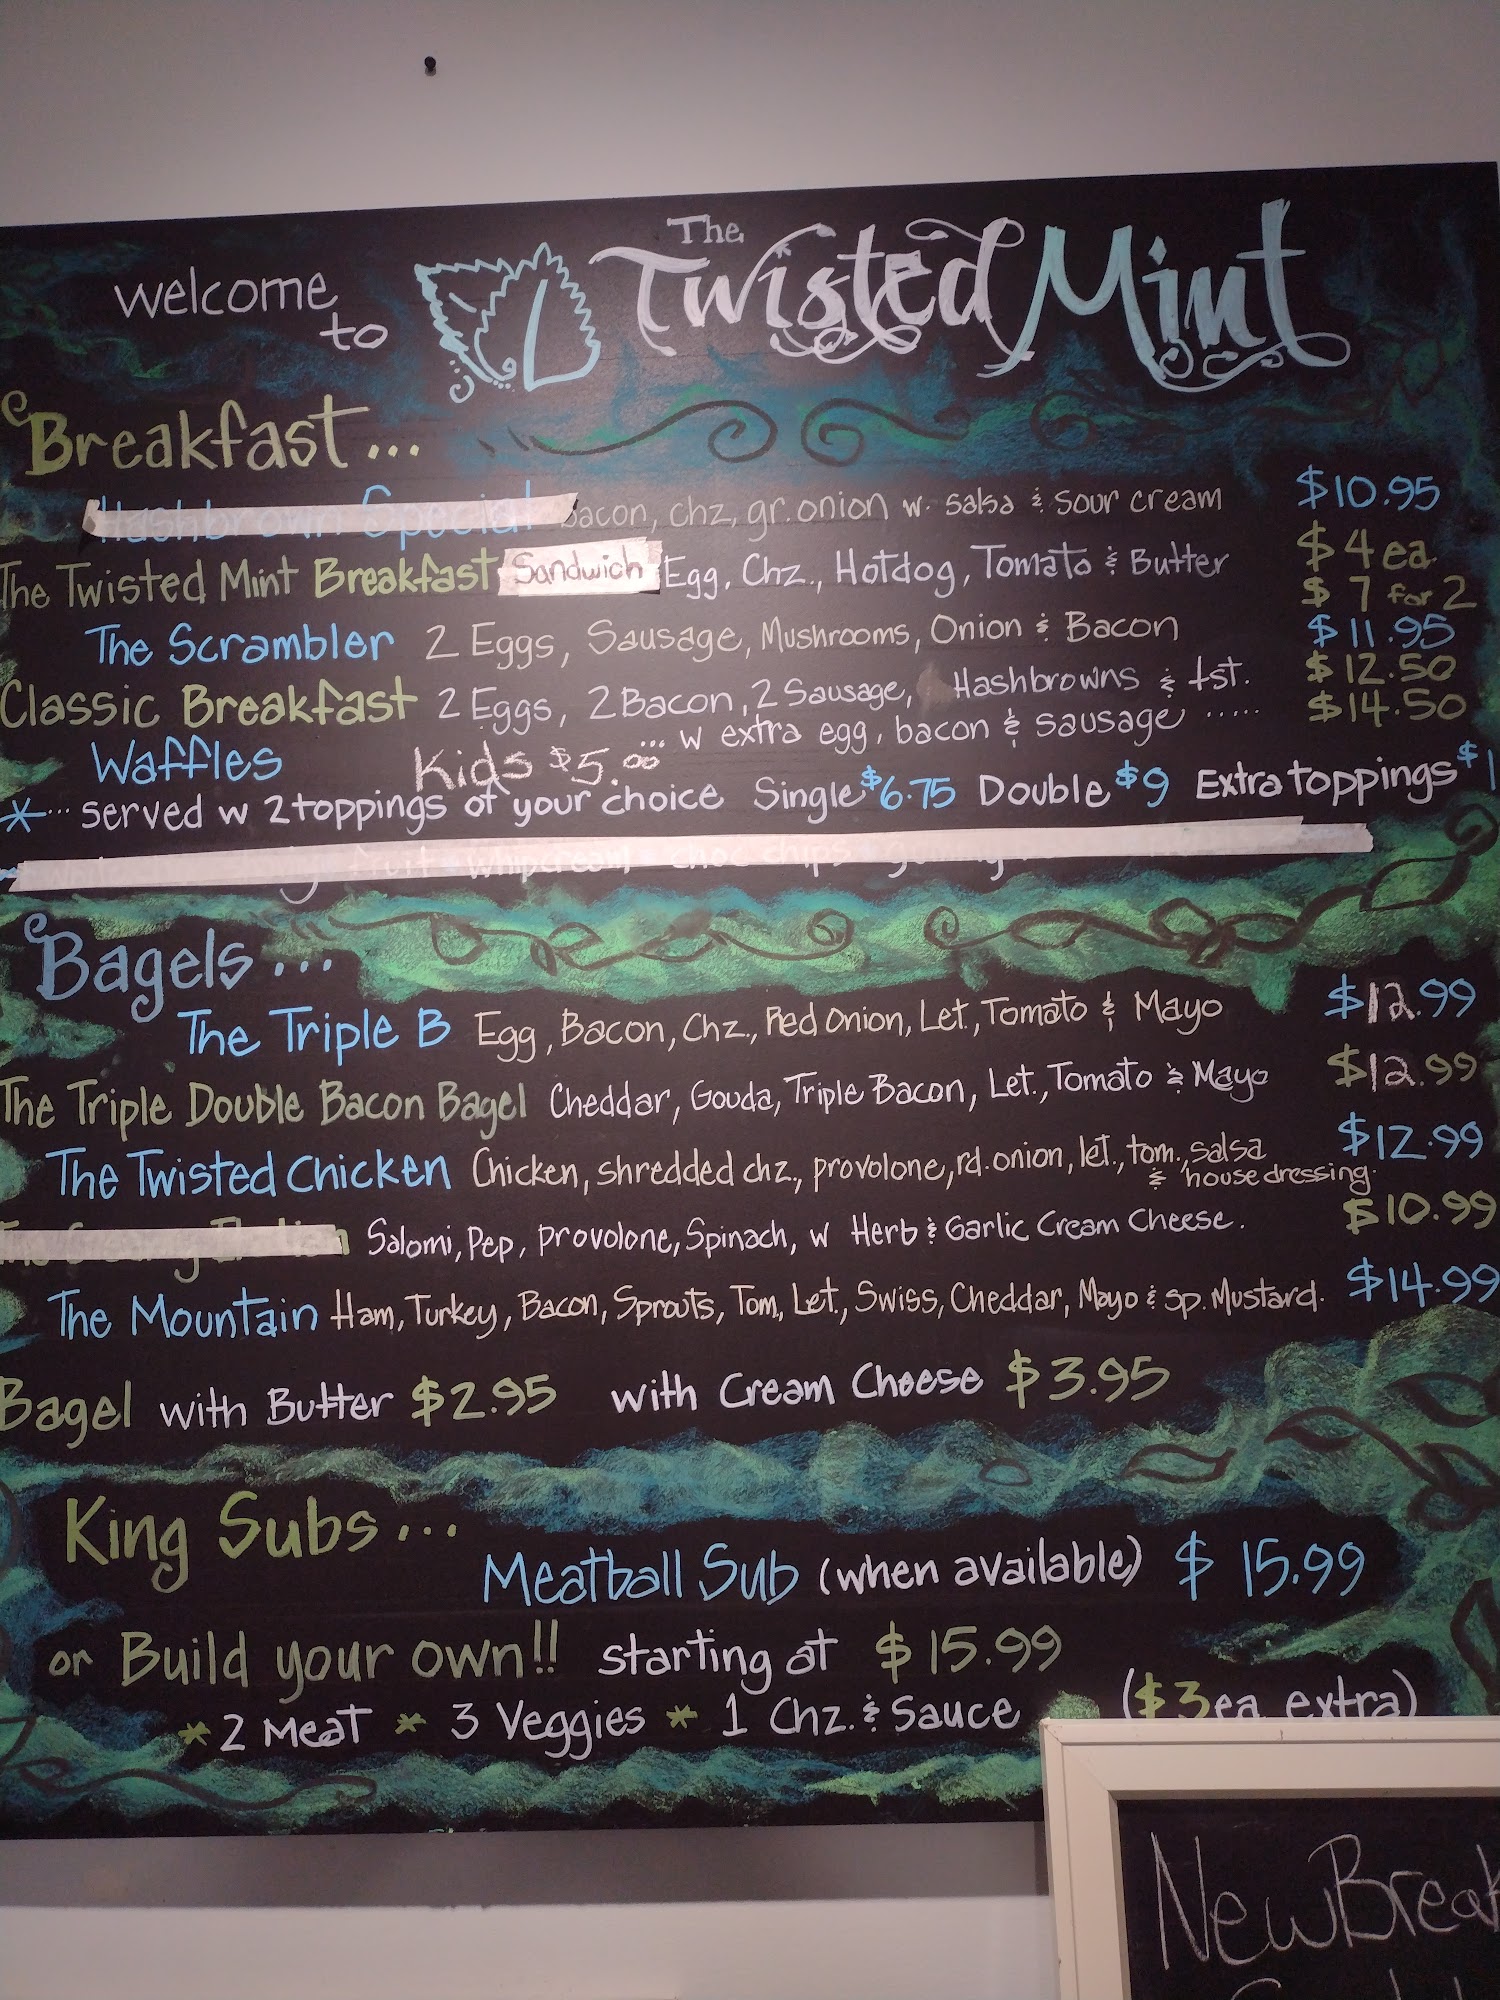 welcome to The Twisted Mint
Breakfast...
Hashbrown Special bacon, chz, gr. onion w. salsa & sour cream $10.95
The Twisted Mint Breakfast Sandwich Egg, Chz., Hotdog, Tomato & Butter $4 ea.
$7 for 2
The Scrambler 2 Eggs, Sausage, Mushrooms, Onion & Bacon $11.95
Classic Breakfast 2 Eggs, 2 Bacon, 2 Sausage, Hashbrowns & tst. $12.50
... w extra egg, bacon & sausage ..... $14.50
Waffles Kids $5.00
*... served w 2 toppings of your choice Single $6.75 Double $9 Extra toppings $1
fruit whipcream choc chips
Bagels...
The Triple B Egg, Bacon, Chz., Red Onion, Let., Tomato & Mayo $12.99
The Triple Double Bacon Bagel Cheddar, Gouda, Triple Bacon, Let., Tomato & Mayo $12.99
The Twisted Chicken Chicken, shredded chz., provolone, rd. onion, let., tom., salsa $12.99
& house dressing.
Salomi, Pep, Provolone, Spinach, w Herb & Garlic Cream Cheese. $10.99
The Mountain Ham, Turkey, Bacon, Sprouts, Tom, Let., Swiss, Cheddar, Mayo & sp. Mustard. $14.99
Bagel with Butter $2.95 with Cream Cheese $3.95
King Subs...
Meatball Sub (when available) $15.99
or Build your own!! starting at $15.99
* 2 Meat * 3 Veggies * 1 Chz. & Sauce ($3 ea extra)
New Break